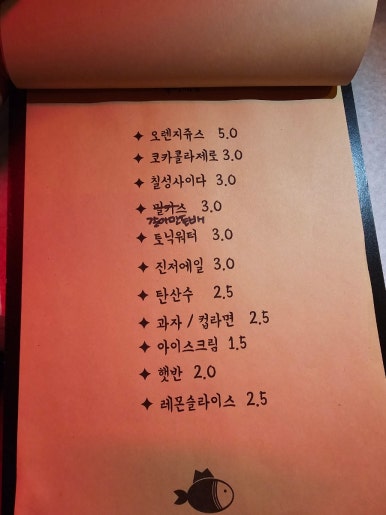 ✦ 오렌지쥬스 5.0
✦ 코카콜라제로 3.0
✦ 칠성사이다 3.0
✦ 밀키스 3.0
갈아만든배
✦ 토닉워터 3.0
✦ 진저에일 3.0
✦ 탄산수 2.5
✦ 과자 / 컵라면 2.5
✦ 아이스크림 1.5
✦ 햇반 2.0
✦ 레몬슬라이스 2.5